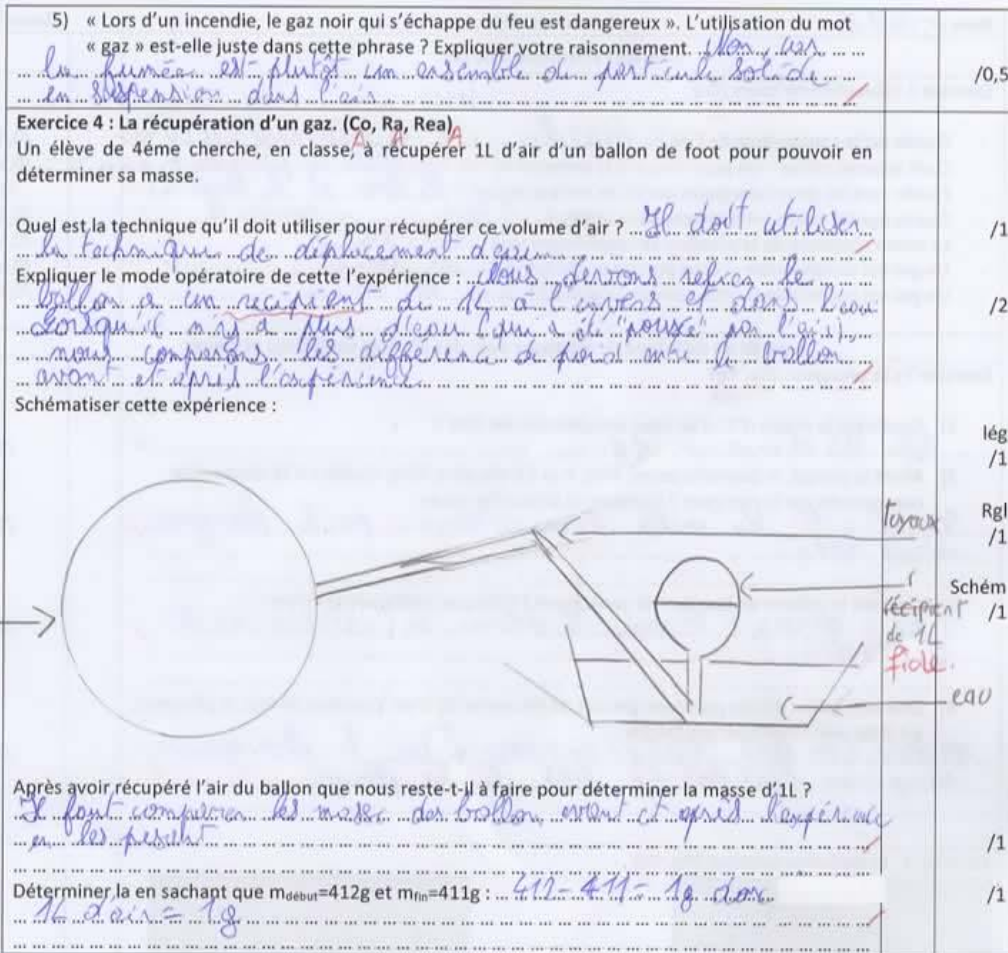 5) « Lors d'un incendie, le gaz noir qui s'échappe du feu est dangereux ». L'utilisation du mot
« gaz » est-elle juste dans cette phrase ? Expliquer votre raisonnement. Non, car
la fumée est plutôt un ensemble de particule solide
/0,5
en suspension dans l'air
Exercice 4 : La récupération d'un gaz. (Co, Ra, Rea)
A A A
Un élève de 4éme cherche, en classe, à récupérer 1L d'air d'un ballon de foot pour pouvoir en
déterminer sa masse.
Quel est la technique qu'il doit utiliser pour récupérer ce volume d'air ? Il doit utiliser
/1
la technique de déplacement d'eau
Expliquer le mode opératoire de cette l'expérience : Nous devons relier le
ballon a un recipient de 1L a l'envers et dans l'eau
/2
Lorsqu'il n'y a plus d'eau (qui a été "poussé" par l'air),
nous comparons les différence de poid entre le ballon
avant et après l'expérience
Schématiser cette expérience :
lég
/1
Rgl
/1
tuyaux
Schém
/1
récipient
de 1L
fiole.
eau
Après avoir récupéré l'air du ballon que nous reste-t-il à faire pour déterminer la masse d'1L ?
Il faut comparer les masse des ballon, avant et après l'expérience
en les pesant
/1
Déterminer la en sachant que mdébut=412g et mfin=411g : 412-411= 1g donc
/1
1L d'air = 1g